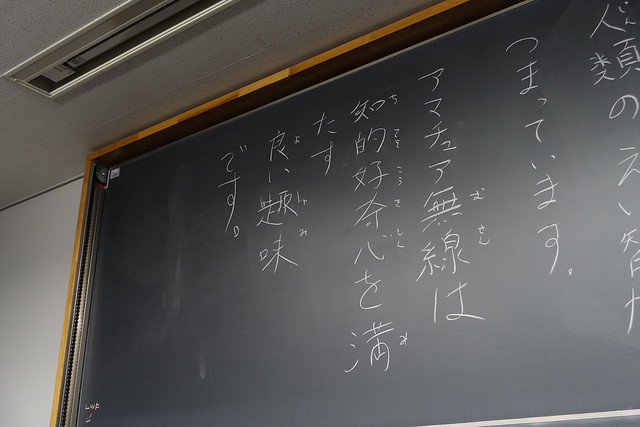 人類のえい智が
つまっています。
アマチュア無線は
知的好奇心を満
たす
良い趣味
です。